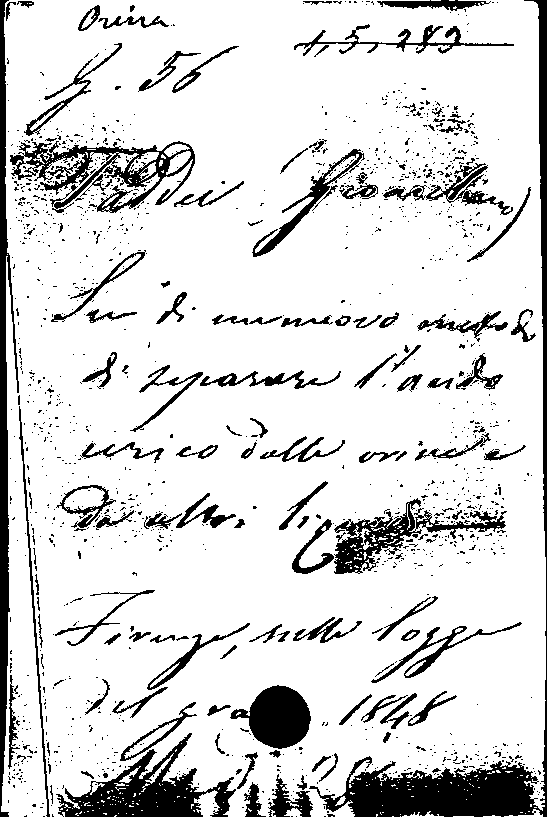 Orina
1, 5, 283
G. 56
Taddei (Gioacchino)
Su di un nuovo metodo
di separare l'acido
urico dalle orine e
da altri liquidi
Firenze, sulle logge
del gra 1848